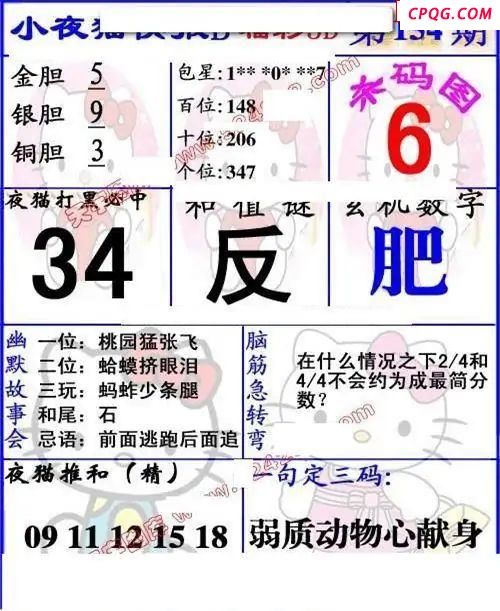 CPQG.COM
小夜猫
第134期
金胆 5
银胆 9
铜胆 3
包星:1** *0* **7
百位:148
十位:206
个位:347
杀码图
6
夜猫打黑必中
34
和值谜
反
玄机数字
肥
幽默故事会
一位:桃园猛张飞
二位:蛤蟆挤眼泪
三玩:蚂蚱少条腿
和尾:石
忌语:前面逃跑后面追
脑筋急转弯
在什么情况之下2/4和
4/4不会约为成最简分
数?
夜猫推和(精)
09 11 12 15 18
一句定三码:
弱质动物心献身